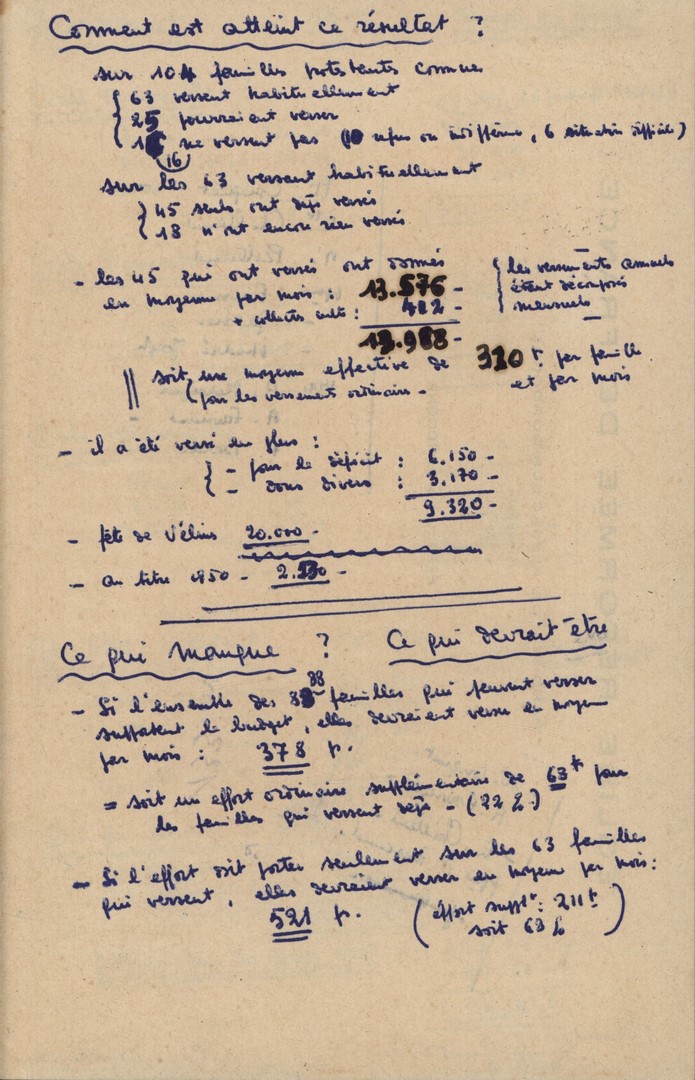 Comment est atteint ce résultat ?
sur 104 familles protestantes connues
63 versent habituellement
25 pourraient verser
16 ne versent pas (10 refus ou indifférence, 6 situation difficile)
(16)
sur les 63 versant habituellement
45 seuls ont déjà versé
18 n'ont encore rien versé
- les 45 qui ont versé ont donné
en moyenne par mois : 13.576 -
+ collectes culte : 412 -
13.988 -
les versements annuels
étant décomposés
mensuels
soit, une moyenne effective de 310 f. par famille
pour les versements ordinaires - et par mois
- il a été versé en plus :
- pour le déficit : 6.150 -
- dons divers : 3.170 -
9.320 -
- fête de Vélins 20.000 -
- au titre 1950 - 2.230 -
Ce qui manque ? Ce qui devrait être
- Si l'ensemble des 88 familles qui peuvent verser
supportent le budget, elles devraient verser en moyenne
par mois : 378 f.
= soit un effort ordinaire supplémentaire de 63 f pour
les familles qui versent déjà - (22 %)
- Si l'effort doit porter seulement sur les 63 familles
qui versent, elles devraient verser en moyenne par mois :
521 f. (effort supplt : 211 f
soit 68 %)